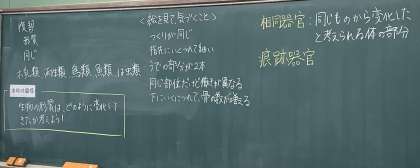 復習
形質
同じ
ホ乳類 両生類 鳥類 魚類 は虫類
生物の形質は、どのように変化して
きたか考えよう!
<絵を見て気づくこと>
つくりが同じ
指先にいくにつれて細い
うでの部分が2本
同じ部位だけど働きが異なる
下にいくにつれて、骨の数が増える
相同器官:同じものから変化した
と考えられる体の部分
痕跡器官